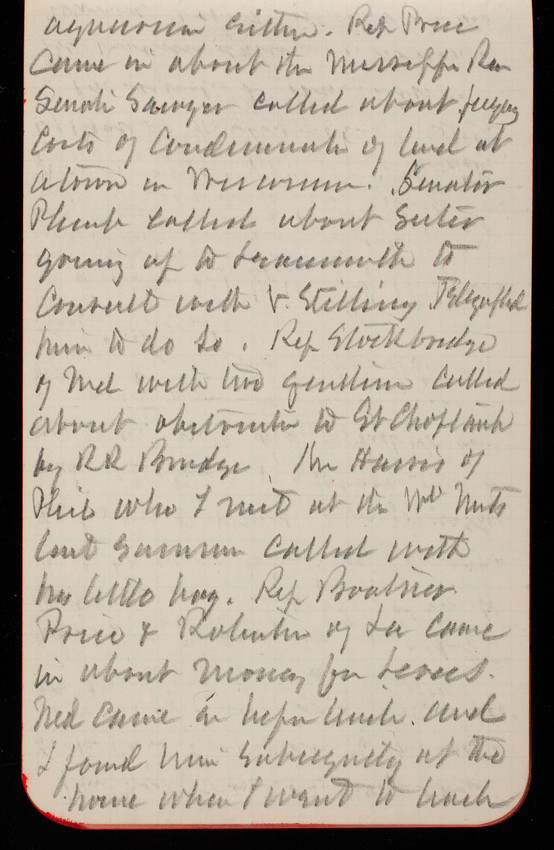 either. Rep Price
Came in about the Mississippi Riv
Senator Sawyer called about
Costs of Condemnation of land at
a town in Wisconsin. Senator
Plumb called about Suter
going up to Leavenworth to
Consult with & Stilling Telegrafhed
him to do so. Rep Stockbridge
of Md with two gentlemen called
about obstruction to Gt Choptank
by RR Bridge. Mr Harris of
Phil who I met at the Wh Mts
last Summer called with
his little boy. Rep Boatner
Price & Robertson of La came
in about money for Levees.
Ned came in before lunch. and
I found him subsequently at the
house when I went to lunch